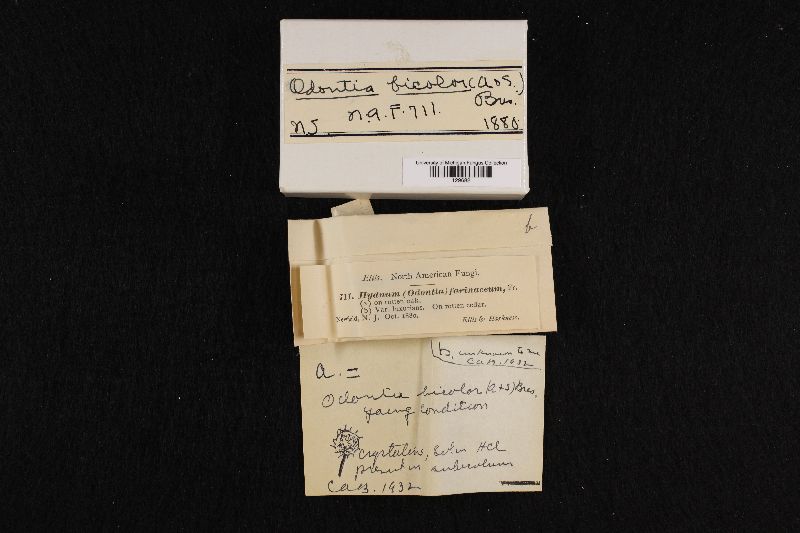 Odontia bicolor (A&S.)
Bres.
N.A.F. 711.
NJ 1880
University of Michigan Fungus Collection
b
Ellis. North American Fungi.
711. Hydnum (Odontia) farinaceum, Fr.
(a) on rotten oak.
(b) Var. luxurians. On rotten cedar.
Newfield, N. J. Oct. 1880. Ellis & Harkness.
b. unknown to me
CaB. 1932
a. =
Odontia bicolor (A+S) Bres,
young condition
crystalens, sol in HCl
present in subiculum
CaB. 1932